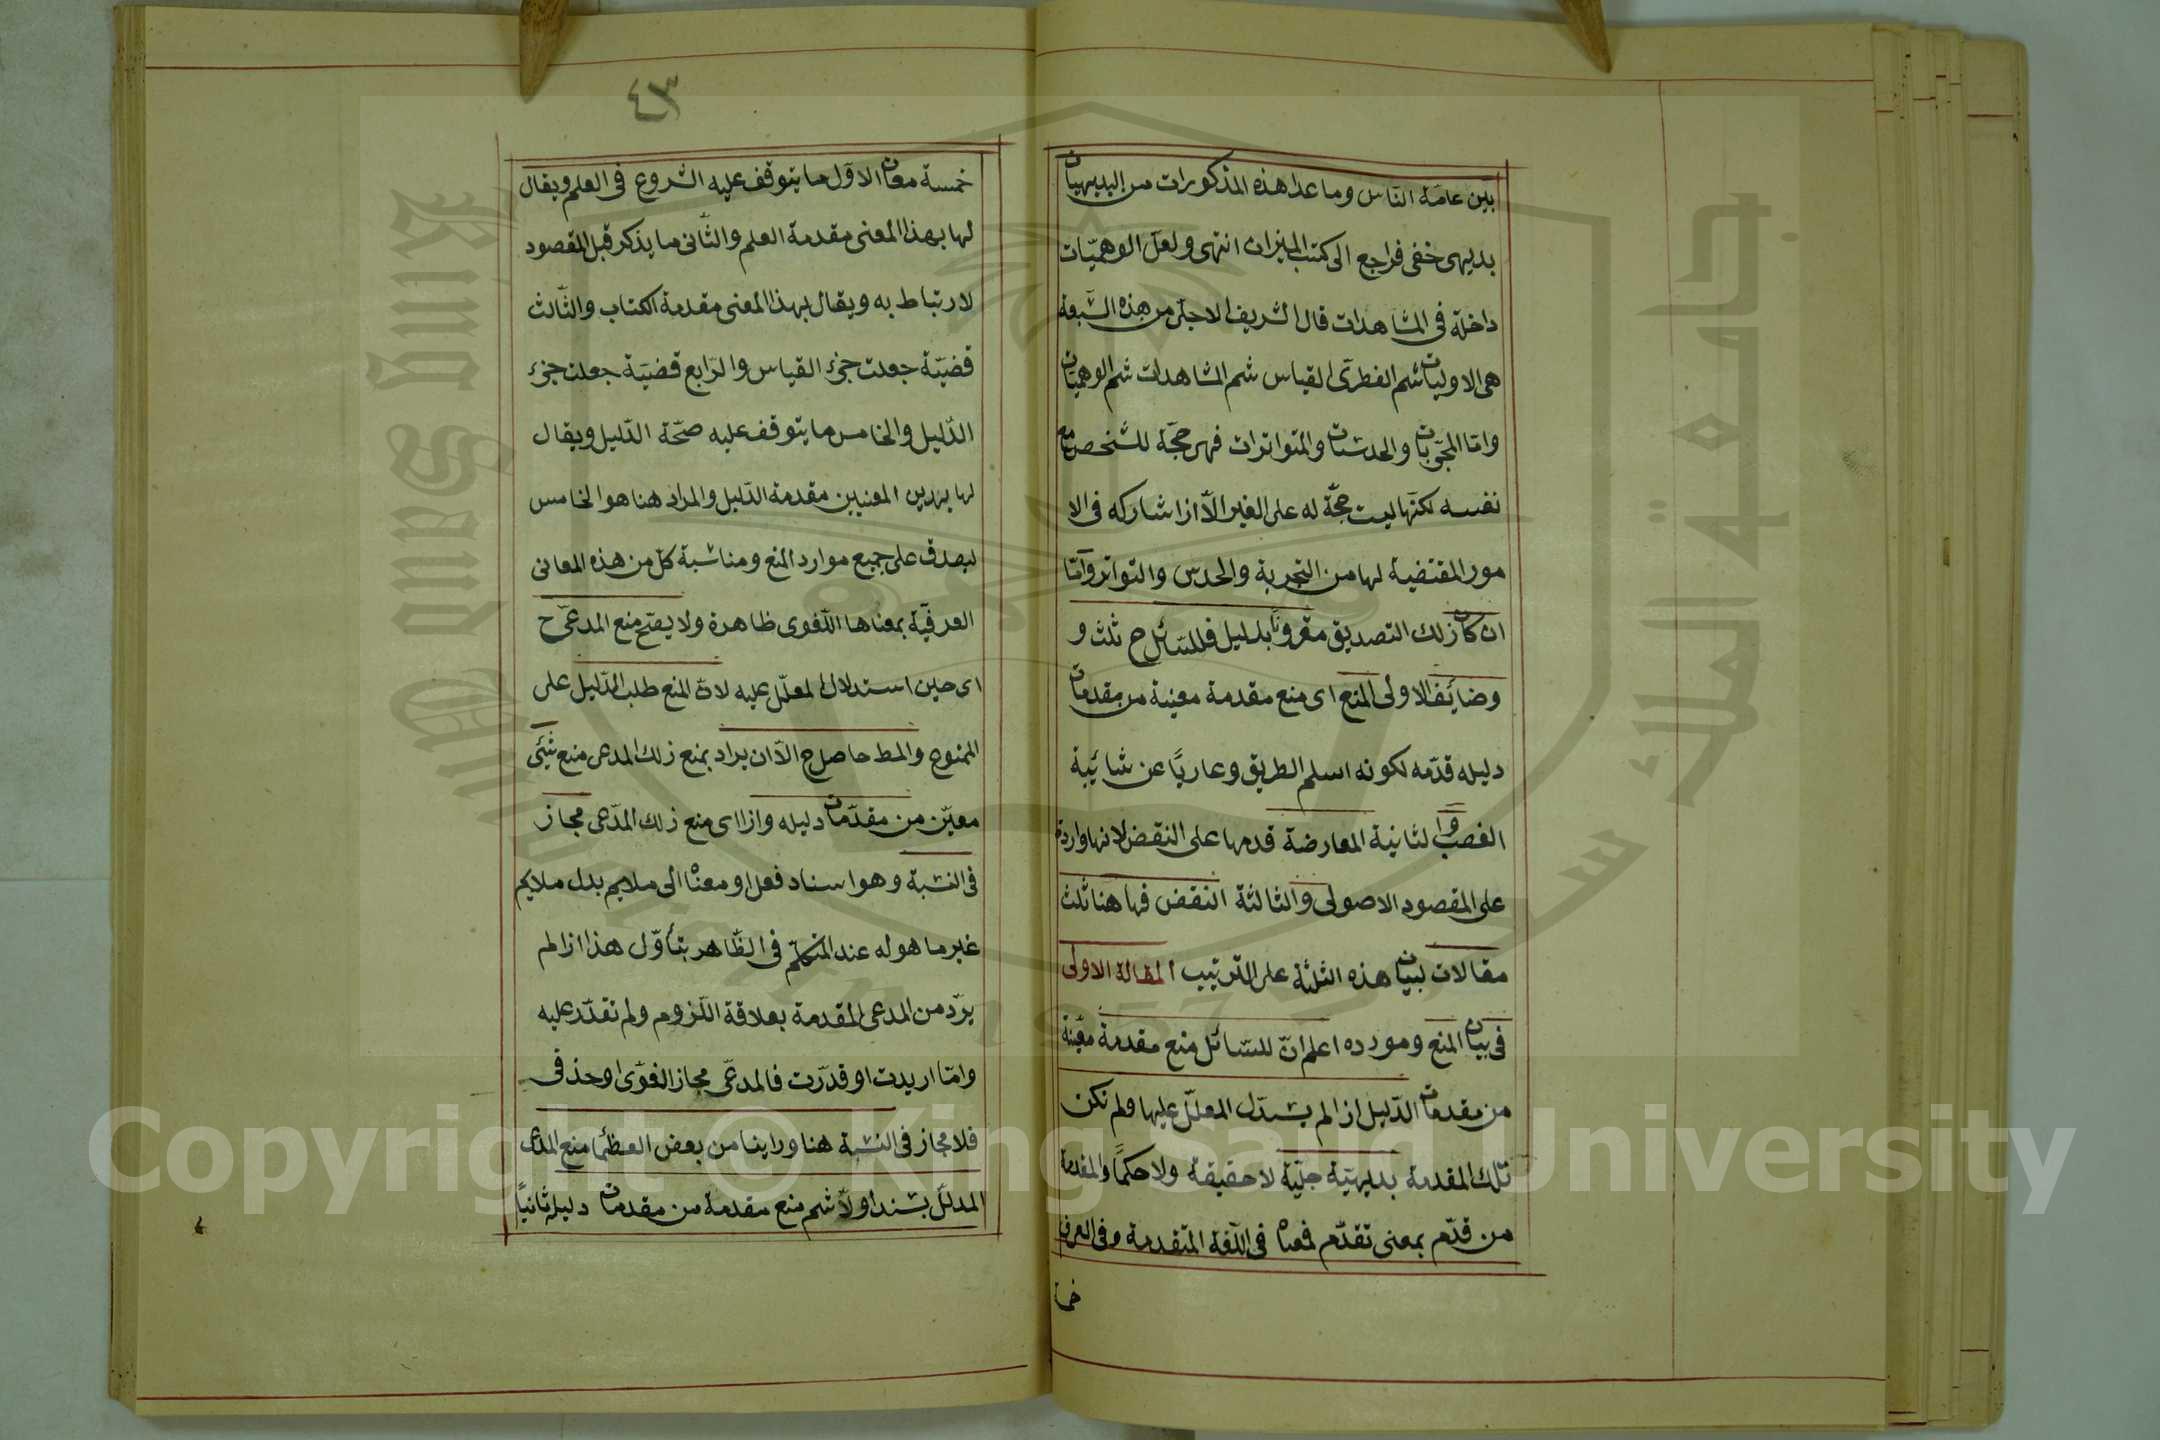 بيّن عامة الناس وما عدا هذه المذكورات من البديهيات
بديهى خفى فراجع الى كتب الميزان انتهى ولعل الوهميّات
داخلة فى المشاهدات قال الشريف الاجلّ من هذه السّبعة
هى الاوليات ثم الفطرىّ القياس ثم المشاهدات ثم الوهميات
وامّا المجرّبات والحدسيّات والمتواترات فهى حجّة للشخص مع
نفسه لكنّها ليست حجّة له على الغير الّا اذا شاركه فى الا
مور المقتضية لها من التجربة والحدس والتواتر وَامّا
ان كان ذلك التصديق مقرونًا بدليل فللسّائل ح ثلث و
وضائف الاولى المنع اى منع مقدمة معينة من مقدمات
دليله قدّمه لكونه اسلم الطريق وعاريًا عن شائبة
الغصب وا لثانية المعارضة قدمها على النقض لانها واردة
على المقصود الاصولى والثالثة النقض فها هنا ثلث
مقالات لبيان هذه الثلثة على الترتيب المقالة الاولى
فى بيان المنع ومورده اعلم انّ للسّائل منع مقدمة معيّنة
من مقدمات الدّليل اذ الم يستدل المعلّل عليها ولم تكن
تلك المقدمة بديهيّة جليّة لا حقيقة ولا حكمًا والمقدمة
من قدّم بمعنى تقدّم فمعناه فى اللّغة المتقدمة وفى العرف
خمسة
٤٣
خمسة معان الاوّل ما يتوقف عليه الشروع فى العلم ويقال
لها بهذا المعنى مقدمة العلم والثّانى ما يذكر قبل المقصود
لارتباط به ويقال بهذا المعنى مقدمة الكتاب والثّالث
قضيّة جعلت جزئ القياس والرّابع قضيّة جعلت جزئ
الدّليل والخامس ما يتوقف عليه صحّة الدّليل ويقال
لها بهذين المعنيين مقدمة الدّليل والمراد هنا هو الخامس
ليصدق على جميع موارد المنع ومناسبة كلّ من هذه المعانى
العرفيّة بمعناها اللّغوى ظاهرة ولا يصّح منع المدعىّ ح
اى حين استدلال المعلّل عليه لانّ المنع طلب الدّليل على
الممنوع والمط حاصل ح الّا ان يراد بمنع ذلك المدعى منع شيئ
معيّن من مقدّمات دليله واذا اى منع ذلك المدّعى مجاز
فى النسبة وهو اسناد فعل او معناه الى ملايم بدل ملايم
غير ما هو له عند المتكلم فى الظّاهر بتأوّل هذا اذا لم
يرد من المدعى المقدمة بعلاقة اللّزوم ولم تقدّر عليه
وامّا اريدت او قدّرت فالمدعىّ مجاز لغوّى او حذفى
فلا مجاز فى النسبة هنا وراينا من بعض العظّما منع المدّعى
المدلّل بسند اولًا ثم منع مقدمة من مقدمات دليله ثانيًا
Copyright © King Saud University
جامعة الملك سعود
King Saud University
1957